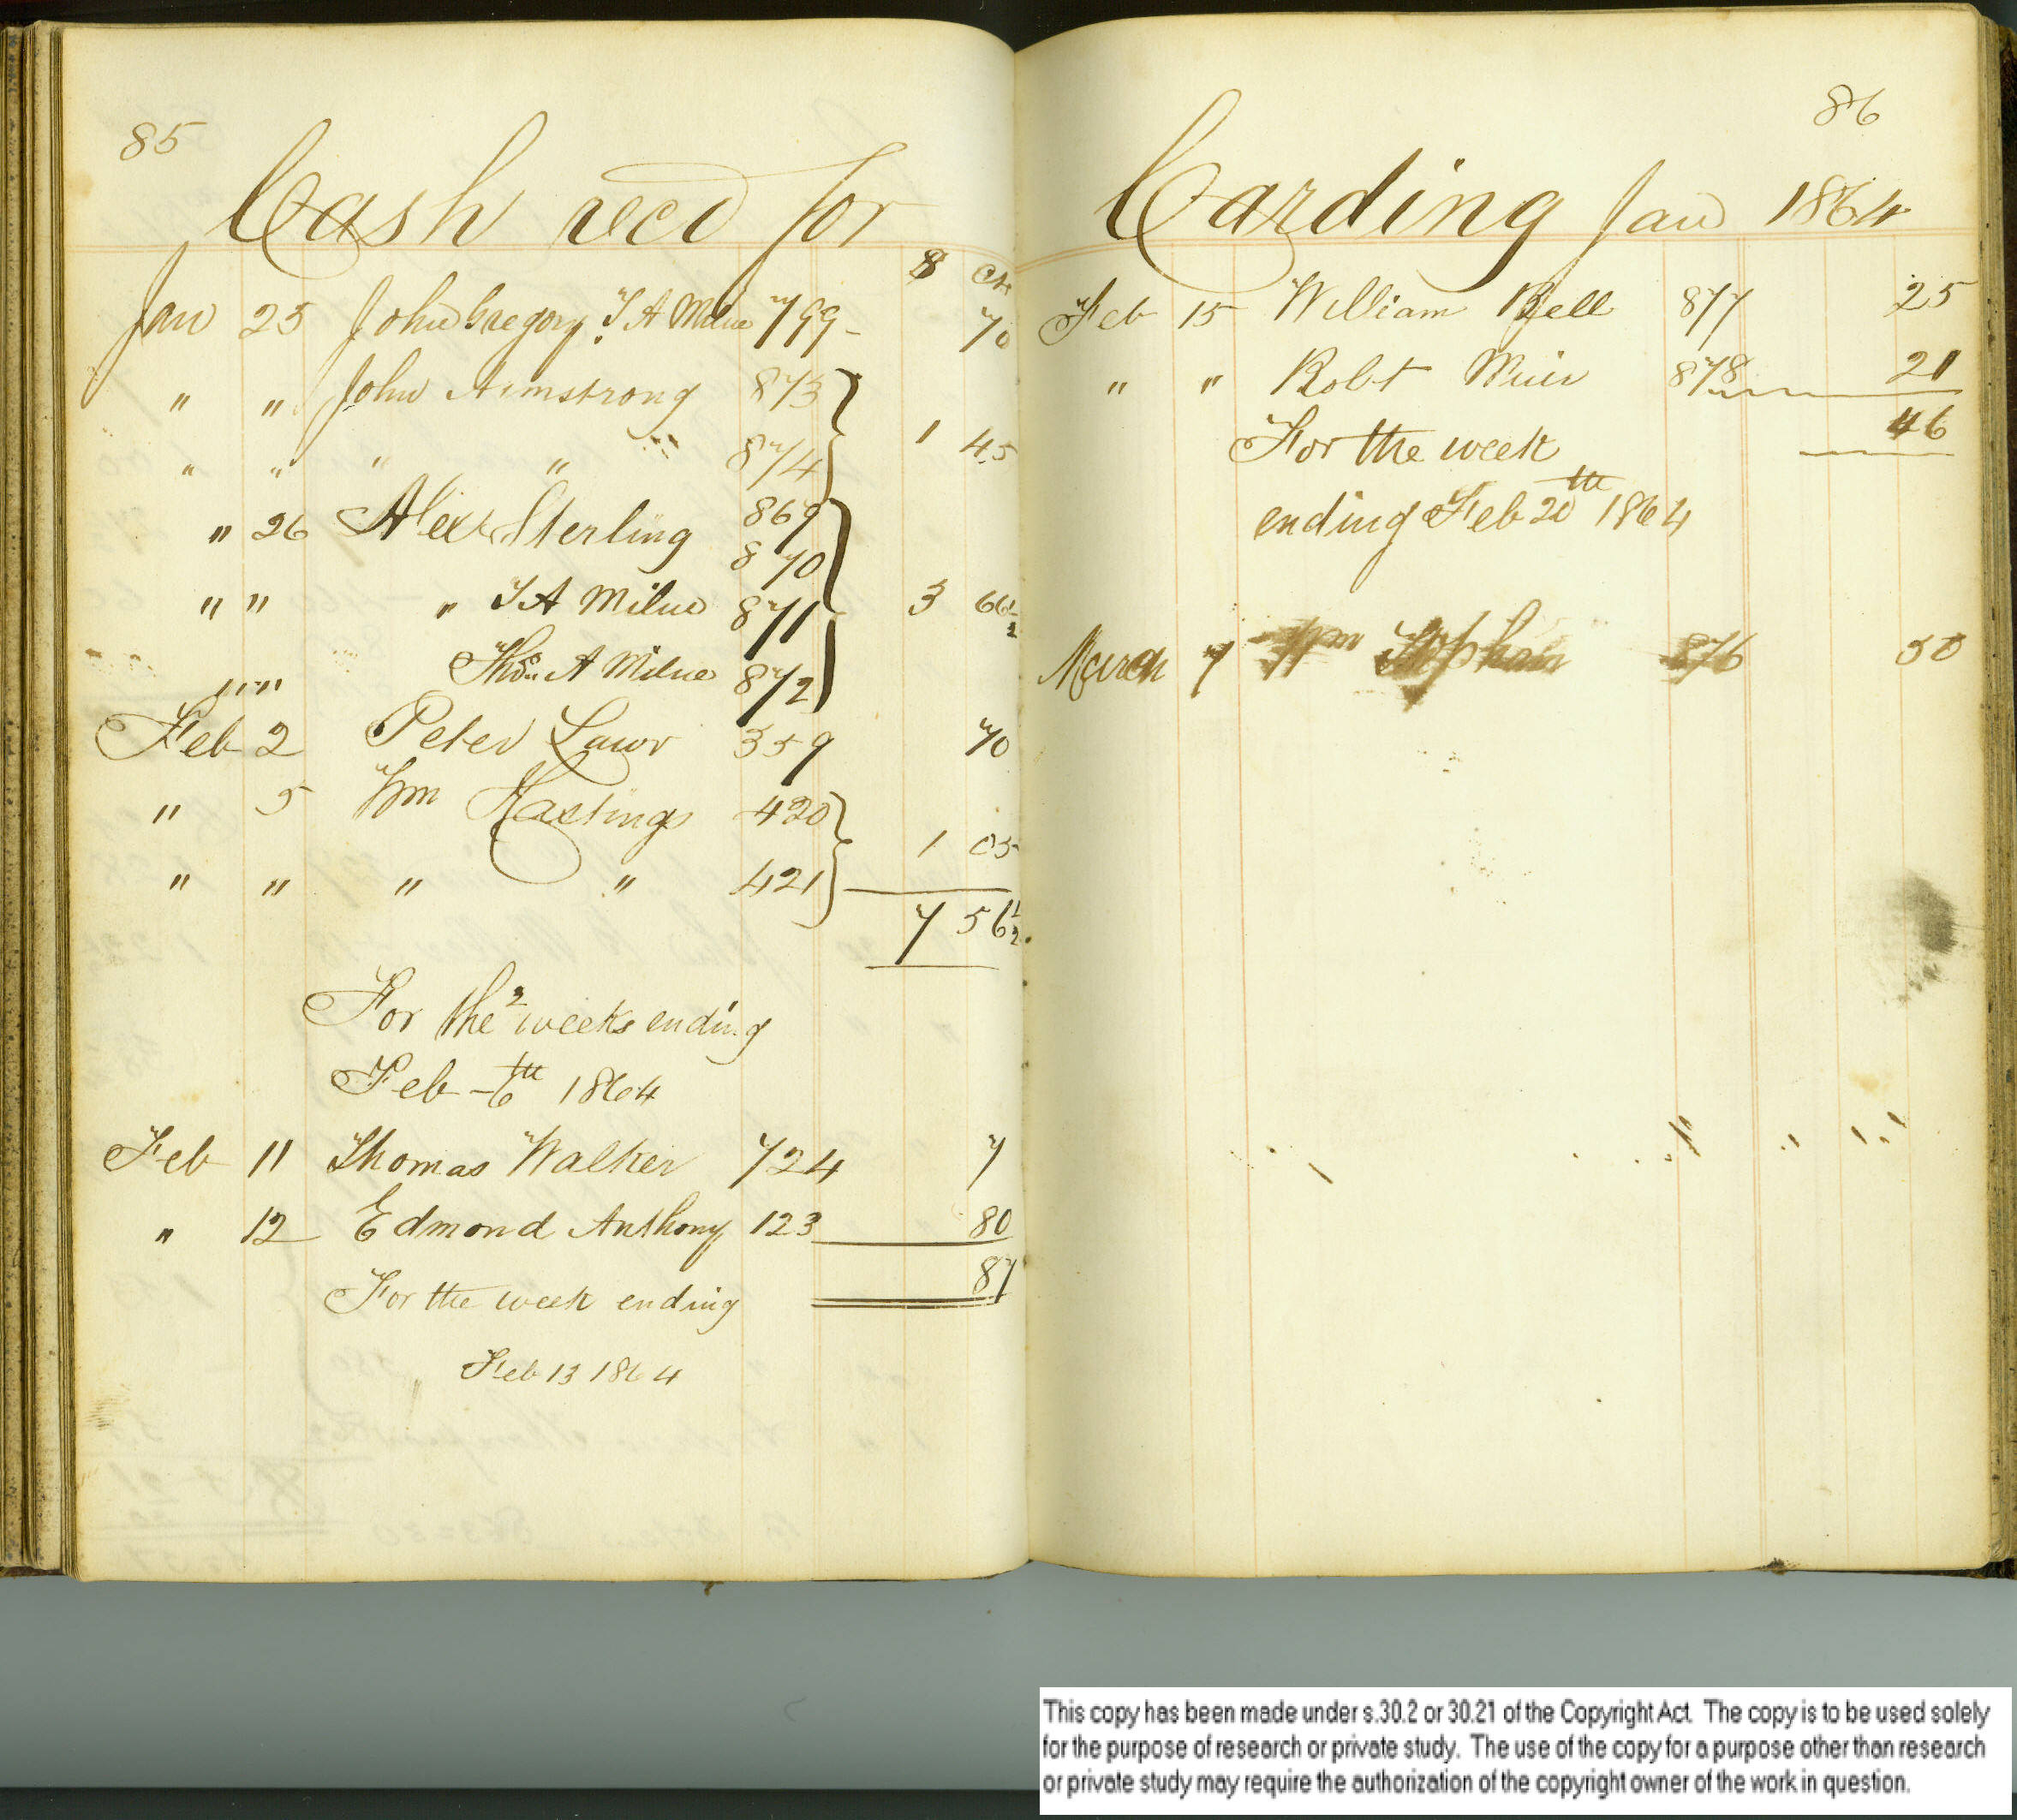 85
Cash recd for
$ cts
Jan 25 John Gregory. T A Milne 799 - 70
" " John Armstrong 873
" " " " 874 1 45
" 26 Alexr Sterling 869
870
" " " T A Milne 871 3 66 1/2
" " Thos A Milne 872
Feb 2 Peter Lawr 359 70
" 5 Wm Hastings 420
1 05
" " " " 421
7 56 1/2
For the 2 weeks ending
Feb - 6th 1864
Feb 11 Thomas Walker 724 7
" 12 Edmond Anthony 123 80
87
For the week ending
Feb 13 1864
86
Carding Jan 1864
Feb 15 William Bell 877 25
" " Robt Muir 878 21
46
For the week
ending Feb 20th 1864
March 7 Wm Stephan 876 50
This copy has been made under s.30.2 or 30.21 of the Copyright Act. The copy is to be used solely
for the purpose of research or private study. The use of the copy for a purpose other than research
or private study may require the authorization of the copyright owner of the work in question.